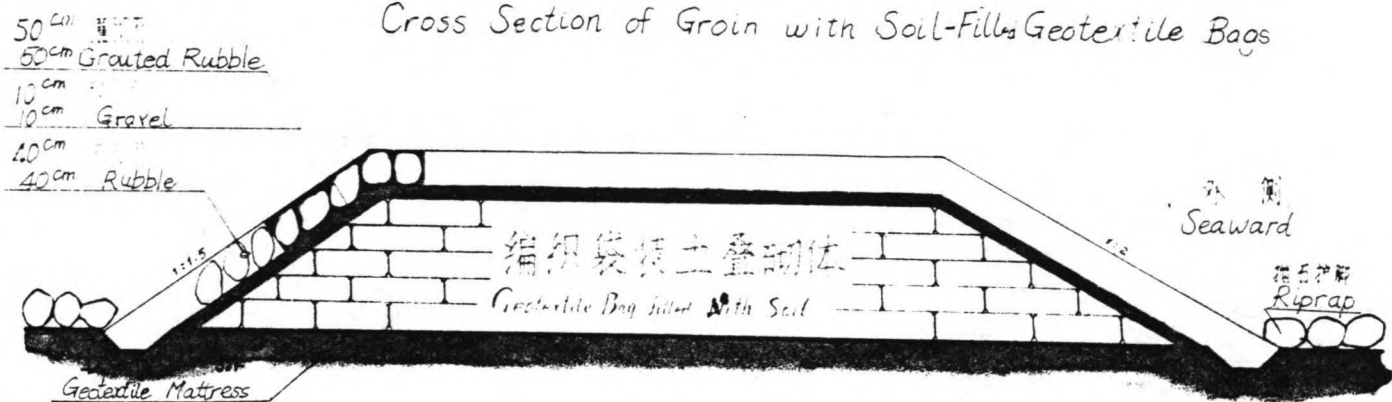 Cross Section of Groin with Soil-Filled Geotextile Bags
50cm
50cm Grouted Rubble
10cm
10cm Gravel
40cm
40cm Rubble
1:1.5
编织袋装土叠砌体
Geotextile Bag filled With Soil
1:2
侧
Seaward
抛石护脚
Riprap
Geotextile Mattress